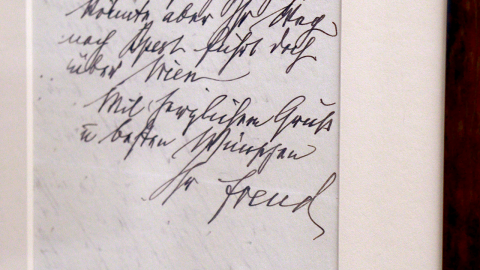 könnte, aber Ihr Weg
nach Ppest führt doch
über Wien
Mit herzlichem Gruß
u besten Wünschen
Ihr Freud